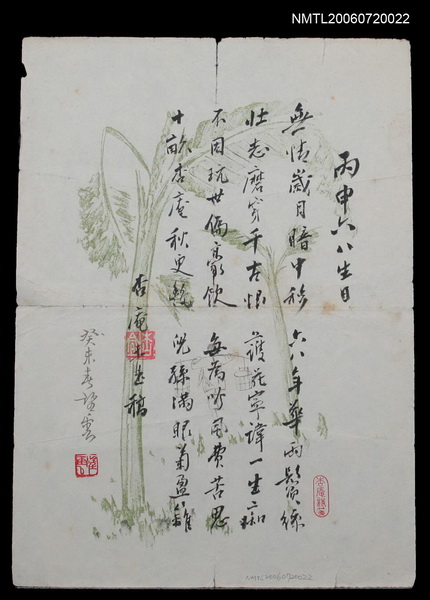 NMTL20060720022
丙申六八生日
無情歲月暗中移 六八年華兩鬢絲
壯志磨穿千古恨 護花寧諱一生痴
不因玩世偏豪飲 每為吟風費苦思
十畝杏庵秋更艷 兒孫滿眼菊盈籬
杏庵生稿
癸未春
NMTL20060720022